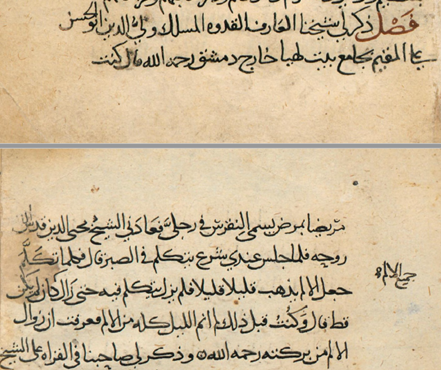 فصل ذكر لي شيخنا العارف القدوه المسلك ولي الدين ابو الحسن
علي المقيم بجامع بيت لهيا خارج دمشق رحمه الله قال كنت
مريضا بمرض يسمى النقرس في رجلي فعادني الشيخ محيي الدين قدس الله
روحه فلما جلس عندي شرع يتكلم في الصبر قال فلما تكلم
جعل الالم يذهب قليلا قليلا فلم يزل يتكلم فيه حتى زال كان لم يكن
قط قال وكنت قبل ذلك لم انم الليل كله من الالم فعرفت ان زوال
الالم من بركته رحمه الله وذكر لي صاحبنا في القراه على الشيخ
جميع الالم